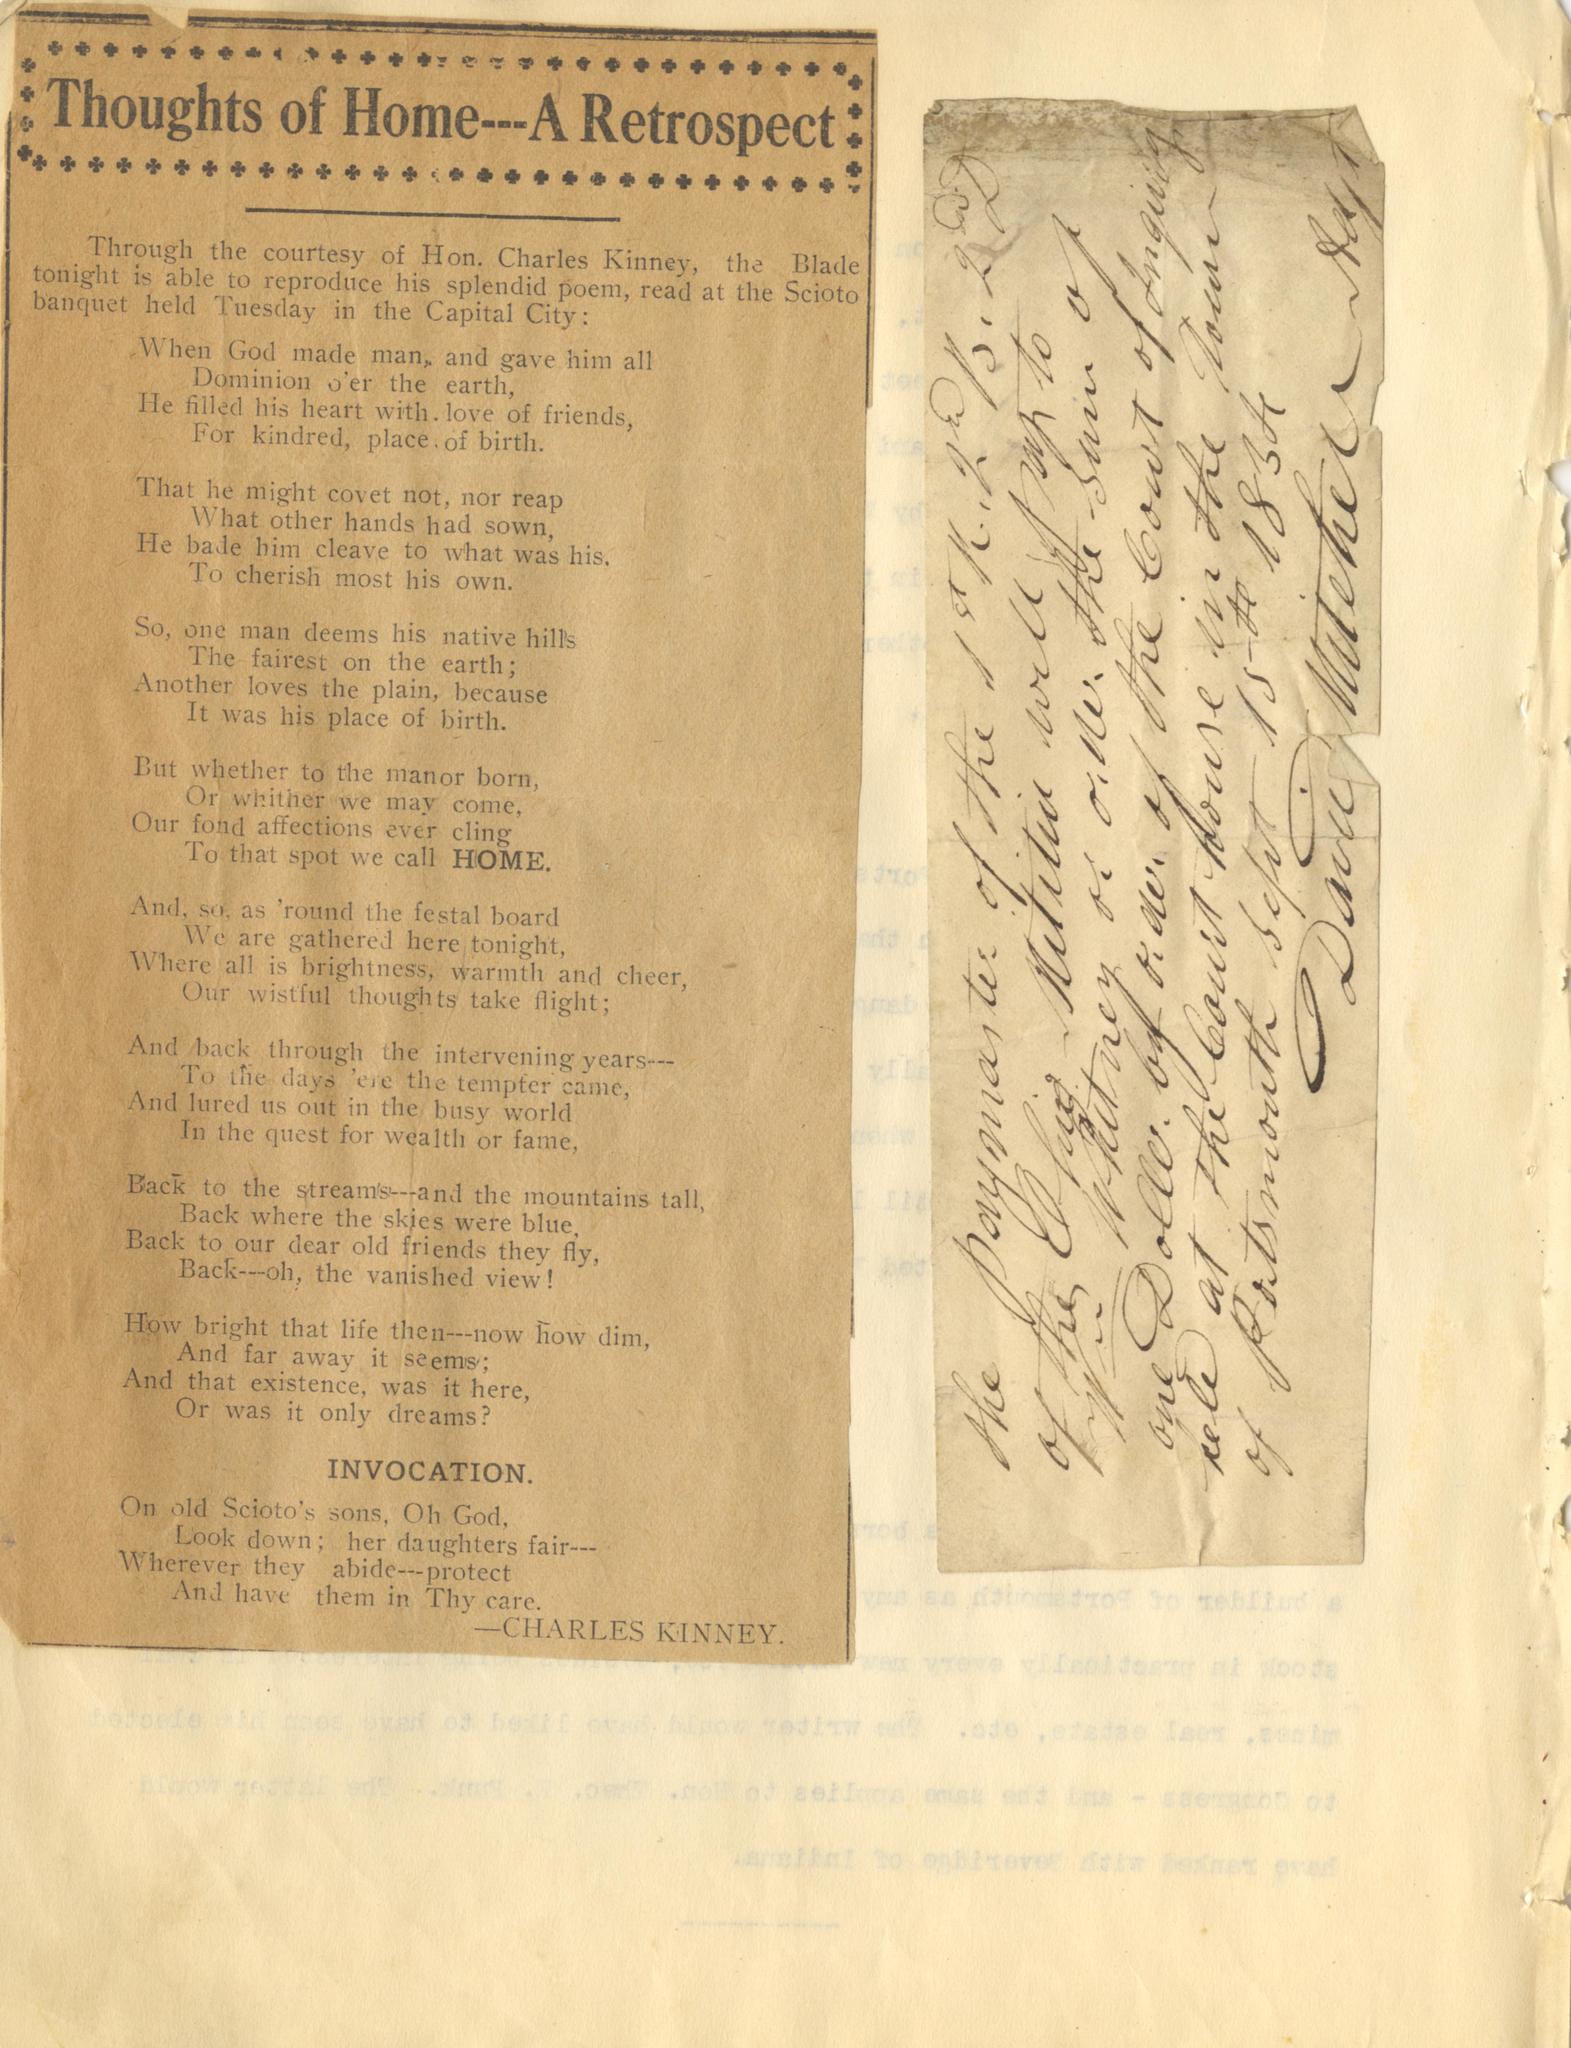 Thoughts of Home---A Retrospect
Through the courtesy of Hon. Charles Kinney, the Blade
tonight is able to reproduce his splendid poem, read at the Scioto
banquet held Tuesday in the Capital City:
When God made man, and gave him all
Dominion o'er the earth,
He filled his heart with love of friends,
For kindred, place of birth.
That he might covet not, nor reap
What other hands had sown,
He bade him cleave to what was his,
To cherish most his own.
So, one man deems his native hills
The fairest on the earth;
Another loves the plain, because
It was his place of birth.
But whether to the manor born,
Or whither we may come,
Our fond affections ever cling
To that spot we call HOME.
And, so, as 'round the festal board
We are gathered here tonight,
Where all is brightness, warmth and cheer,
Our wistful thoughts take flight;
And back through the intervening years---
To the days 'ere the tempter came,
And lured us out in the busy world
In the quest for wealth or fame,
Back to the streams---and the mountains tall,
Back where the skies were blue,
Back to our dear old friends they fly,
Back---oh, the vanished view!
How bright that life then---now how dim,
And far away it seems;
And that existence, was it here,
Or was it only dreams?
INVOCATION.
On old Scioto's sons, Oh God,
Look down; her daughters fair---
Wherever they abide---protect
And have them in Thy care.
—CHARLES KINNEY.
the paymaster of the 1st R. 2d B. 2d D
of the Ohio Militia will pay to
Whitney or order the sum of
one Dollar by order of the Court of Inquiry
held at the Court house in the Town
of Portsmouth Sept 15th 1834
David
a builder of Portsmouth as any
stock in practically every new
mines, real estate, etc. The writer would have liked to have seen him elected
to Congress - and the same applies to Hon. Theo. K. Funk. The latter would
have ranked with Beveridge of Indiana.